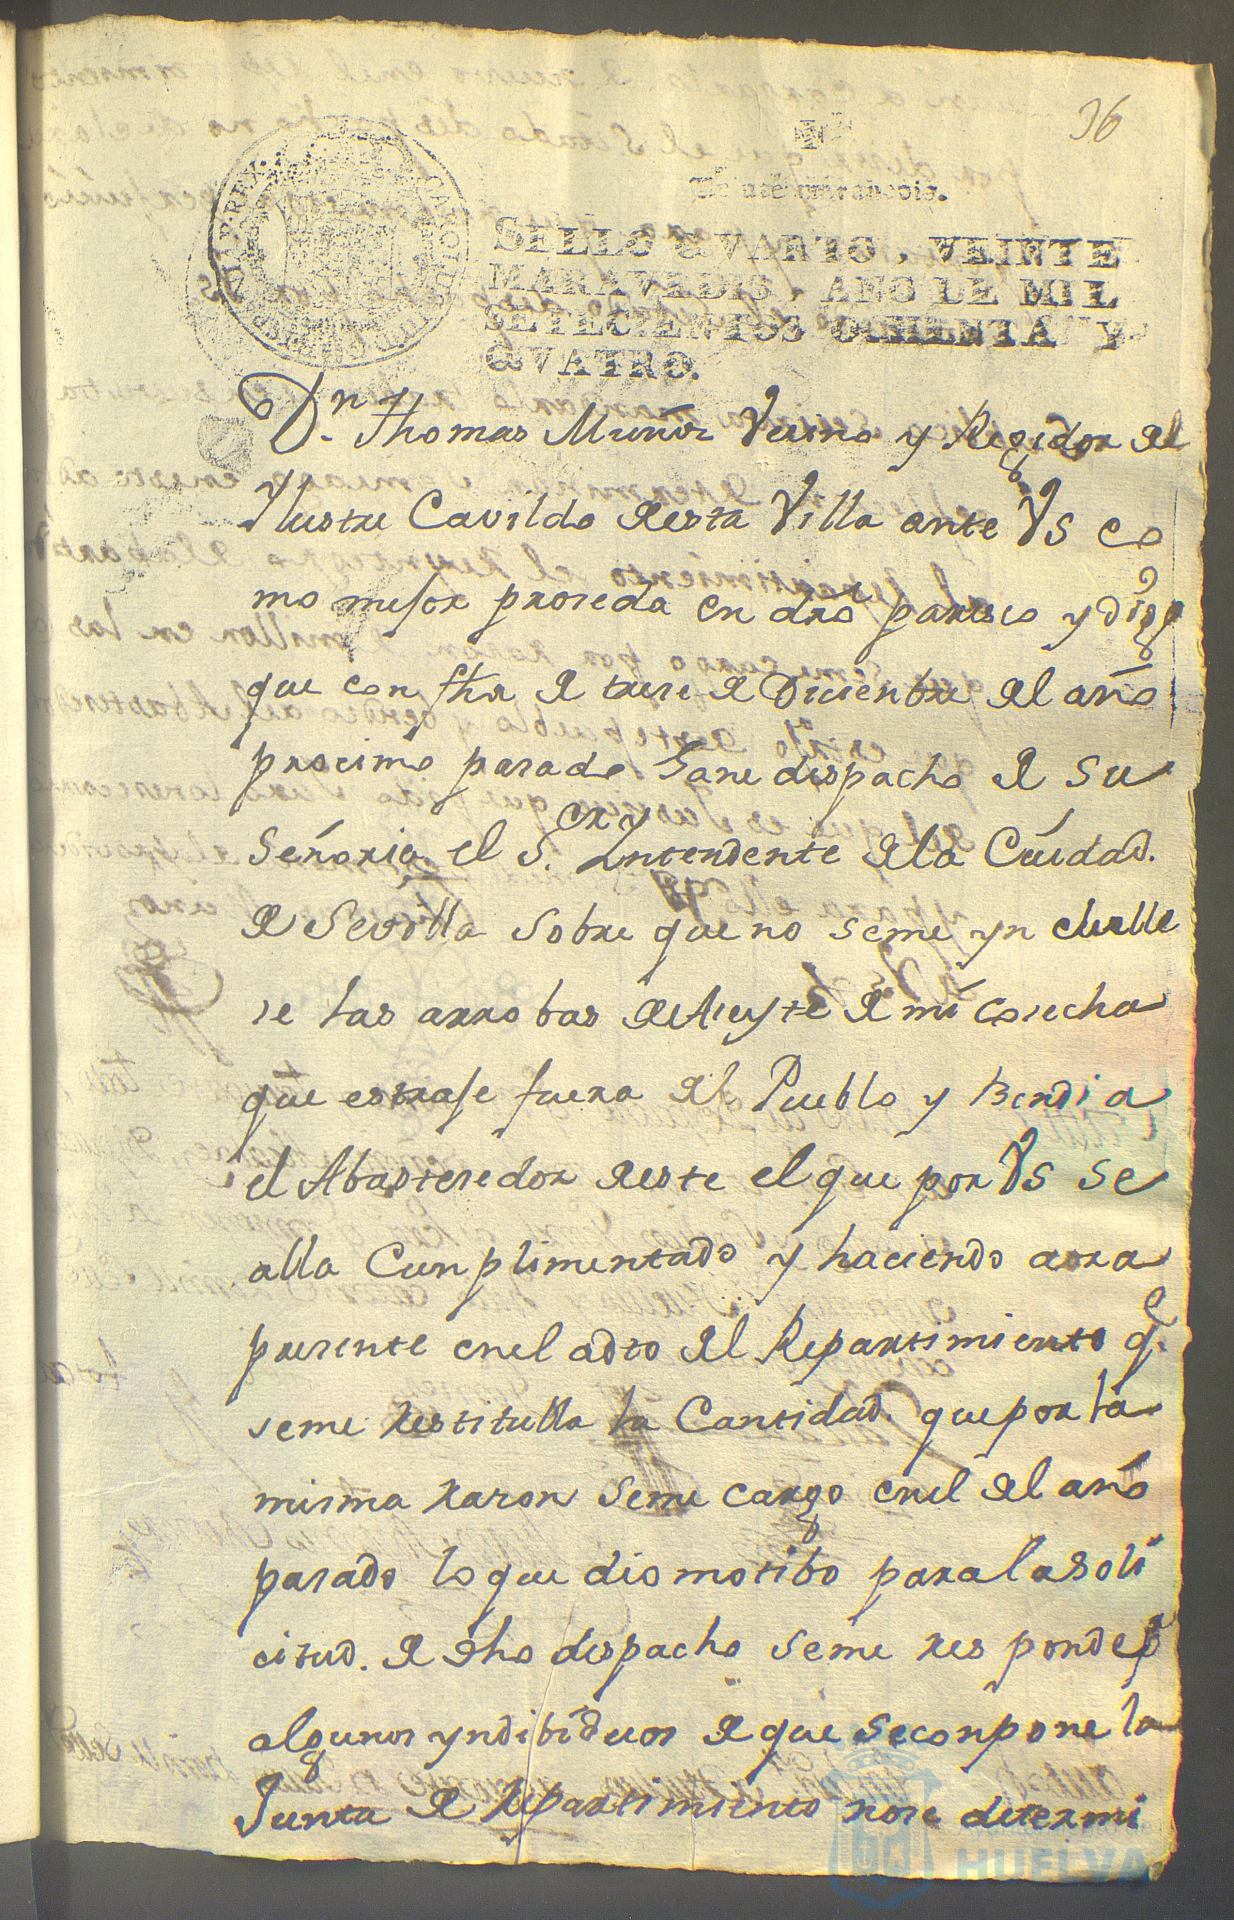 36
Veinte maravedis.
SELLO QVARTO, VEINTE
MARAVEDIS, AÑO DE MIL
SETECIENTOS OCHENTA Y
QVATRO.
Dn. Thomas Muñiz Vecino y Regidor del
Yllustre Cavildo desta Villa ante VS co
mo mejor proceda en dro paresco y digo
que con fha de trese de Diciembre del año
procimo pasado Gane despacho de su
Señoria el Sor. Yntendente dela Ciudad.
de Sevilla sobre que no seme yn clulle
se las arrobas de Aseyte de mi cosecha
que estraje fuera del Pueblo y Bendi a
el Abasteredor deste el que por VS se
alla Cunplimentado y haciendo aora
presente enel acto del Repartimiento qe.
seme Restitulla la Cantidad. que por la
misma raron seme cargo enel del año
pasado lo que dio motibo para la soli
citud. de dho despacho seme responde pr
algunos yndibiduos de que se conpone la
Junta de Repartimiento nose determi
HUELVA